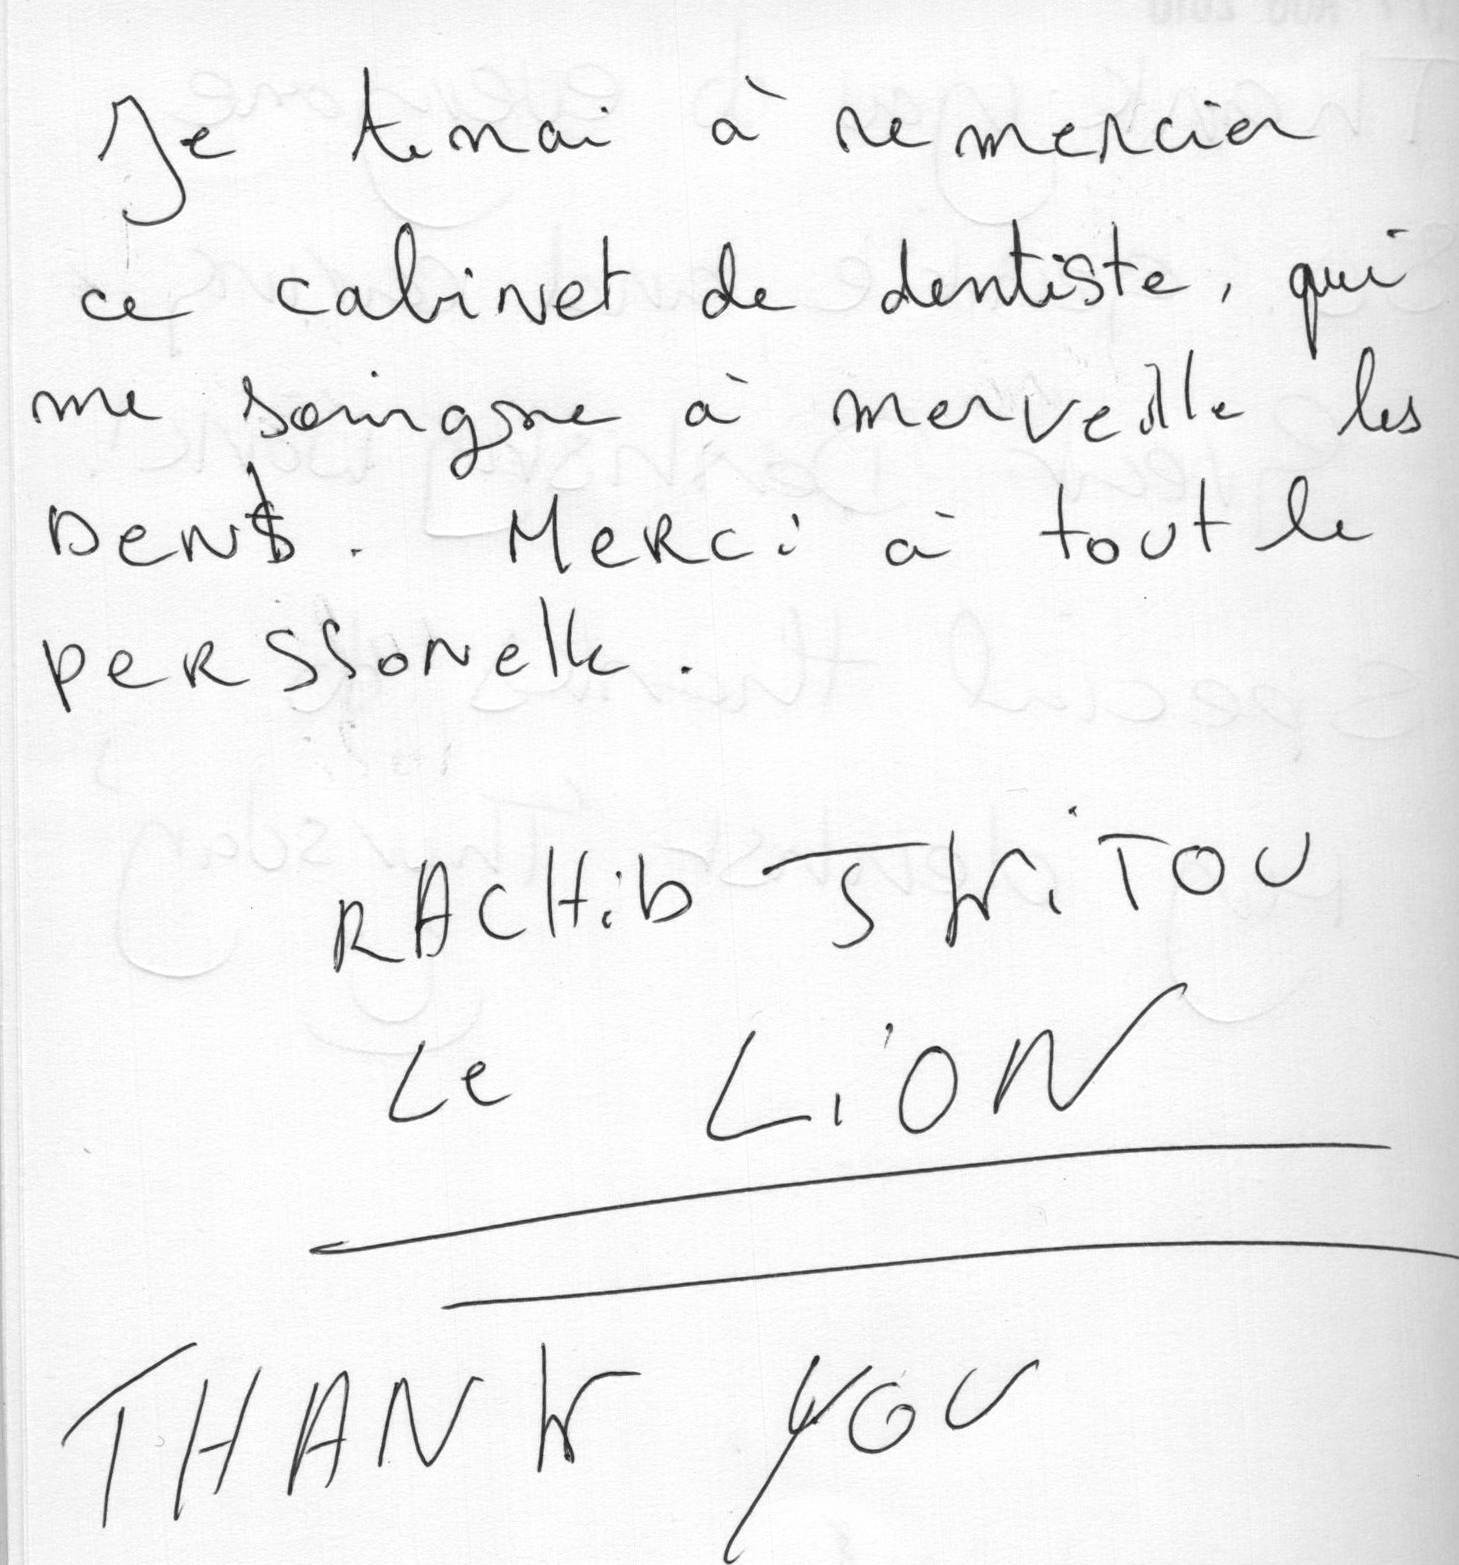 Je tenai à remercier
ce cabinet de dentiste, qui
me soingne à merveille les
DeNts. MeRci à tout le
peRSSoNelle.
RACHib TSKiTOU
Le LiON
THANK YOU